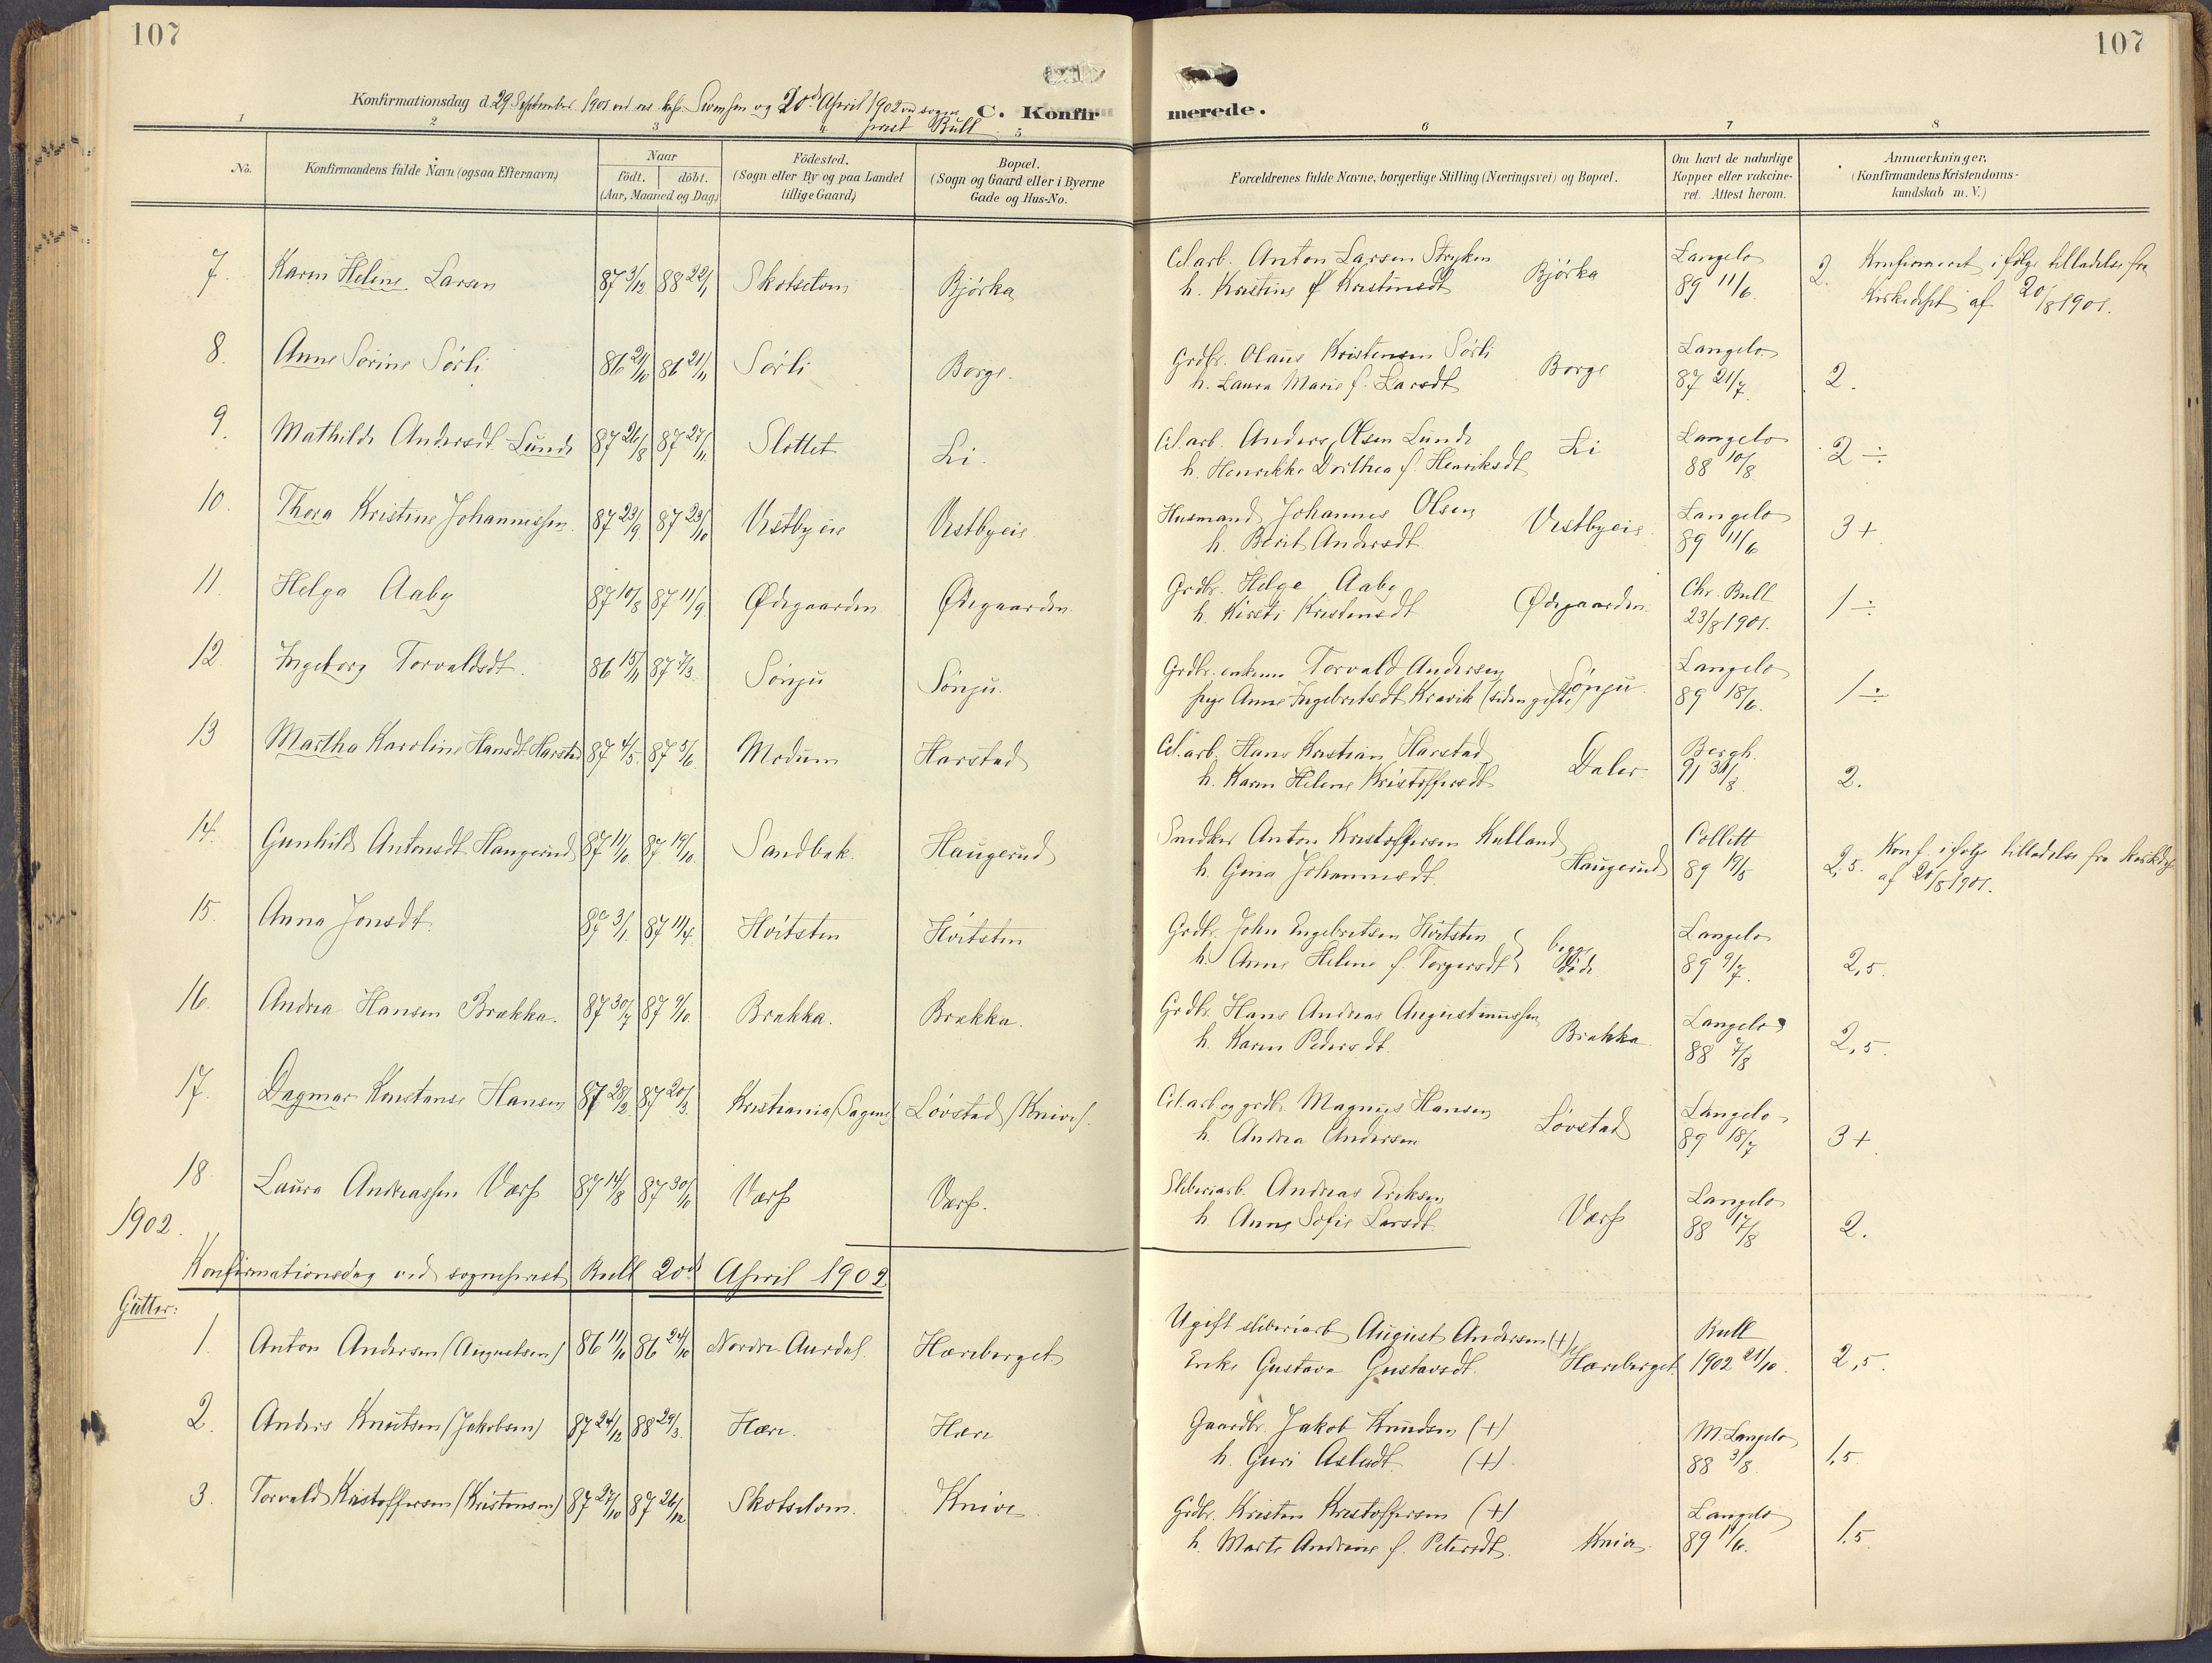 107
107
Konfirmationsdag d. 29 September 1901 ved res. kap. Svensen og 20de April 1902 ved sogne
prest Bull
C. Konfir
merede.
1 2 3 4 5 6 7 8
No.
Konfirmandens fulde Navn (ogsaa Efternavn)
Naar
født. døbt.
(Aar, Maaned og Dag)
Fødested.
(Sogn eller By og paa Landet
tillige Gaard)
Bopæl.
(Sogn og Gaard eller i Byerne
Gade og Hus-No.
Forældrenes fulde Navne, borgerlige Stilling (Næringsvei) og Bopæl.
Om havt de naturlige
Kopper eller vakcine-
ret. Attest herom.
Anmærkninger.
(Konfirmandens Kristendoms-
kundskab m. V.)
7. Karen Helene Larsen 87 3/12 88 22/1 Skotselven Bjørka Cel.arb. Anton Larsen Stryken
h. Kristine f. Kristinsdt Bjørka Langelo
89 11/6 2. Konfirmeret ifølge tilladelse fra
Kirkedept af 20/8 1901.
8. Anne Sørine Sørli 86 21/10 86 21/11 Sørli Borge. Grdbr. Olaus Kristensen Sørli
h. Laura Marie f. Larsdt Borge Langelo
87 21/7 2.
9. Mathilde Andersdt Lunde 87 26/8 87 27/11 Slottet Li. Cel.arb. Anders Olsen Lunde
h. Henrikke Dorthea f. Henriksdt Li Langelo
88 10/8 2 ÷
10. Thora Kristine Johannessen 87 23/9 87 23/10 Vestbyeie Vestbyeie. Husmand Johannes Olsen
h. Berit Andersdt Vestbyeie. Langelo
89 11/6 3 +
11. Helga Aaby 87 10/8 87 11/9 Ødegaarden Ødegaarden. Grdbr. Helge Aaby
h. Kirsti Kristensdt Ødegaarden Chr. Bull
23/8 1901. 1 ÷
12. Ingeborg Torvaldsdt. 86 15/11 87 7/3 Sønju Sønju. Grdbr. enkem. Torvald Andersen
pige Anne Ingebretsdt Kravik (siden gifte) Sønju. Langelo
89 18/6. 1 ÷
13 Martha Karoline Hansdt Harstad 87 4/5 87 5/6 Modum Harstad Cel.arb. Hans Kristian Harstad
h. Karen Helene Kristoffersdt Daler. Bergh.
91 30/8 2.
14. Gunhild Antonsdt Haugerud 87 11/10 87 19/10. Sandbak. Haugerud Snedker Anton Kristoffersen Kulland
h. Gina Johannesdt. Haugerud Collett
89 19/5 2,5. Konf. ifølge tilladelse fra Kirkedept
af 20/8 1901.
15. Anna Jonsdt. 87 3/1 87 11/4 Hvitsten Hvitsten Grdbr. John Engebretsen Hvitsten
h. Anne Helene f. Torgersdt begge
døde Langelo
89 9/7. 2,5.
16. Andrea Hansen Brekka. 87 30/7 87 9/10. Brekka. Brekka. Grdbr. Hans Andreas Augustinussen
h. Karen Pedersdt. Brekka Langelo
88 7/8 2,5.
17. Dagmar Konstanse Hansen 87 28/2 87 20/3. Kristiania (Sagene) Løvstad (Knive). Cel.arb. og grdbr. Magnus Hansen
h. Andrea Andersen Løvstad Langelo
89 18/7 3 +
18. Laura Andreassen Varp 87 14/8 87 30/10 Varp Varp. Sliberiarb. Andreas Eriksen
h. Anne Sofie Larsdt. Varp Langelo
88 17/8 2.
1902.
Konfirmationsdag ved sogneprest Bull 20de April 1902
Gutter:
1. Anton Andersen (Augustsen) 86 11/10 86 24/10 Nordre Aurdal Horeberget Ugift sliberiarb August Andersen (+)
Enke Gustava Gustavsdt. Horeberget Bull
1902 21/10. 2,5.
2. Anders Knutsen (Jakobsen) 87 24/12 88 29/3. Hære. Hære Gaardbr. Jakob Knudsen (+)
h. Guri Aslesdt. (+). M. Langelo
88 3/8 1,5.
3. Torvald Kristoffersen (Kristensen) 87 27/10 87 26/12 Skotselven. Knive Grdbr. Kristen Kristoffersen (+)
h. Marte Andrine f. Petersdt. Knive. Langelo
89 11/6. 1,5.